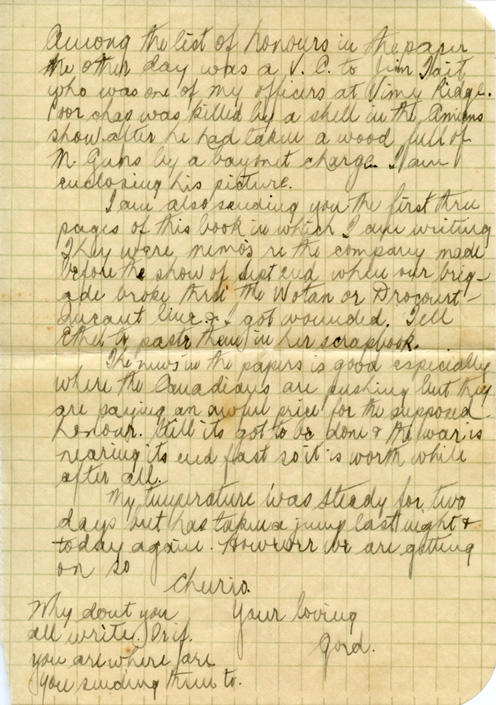 Among the list of honours in the paper
the other day was a V. C. to Jim Tait
who was one of my officers at Vimy Ridge.
Poor chap was killed by a shell in the Amiens
show after he had taken a wood full of
M. Guns by a bayonet charge. I am
enclosing his picture.
I am also sending you the first three
pages of this book in which I am writing
They were memos re the company made
before the show of Sept 2nd when our brig-
ade broke thro the Wotan or Drocourt-
Queant line & I got wounded. Tell
Ethel to paste them in her scrapbook.
The news in the papers is good especially
where the Canadians are pushing but they
are paying an awful price for the supposed
honour. Still its got to be done & the war is
nearing its end fast so it is worth while
after all.
My temperature was steady for two
days but has taken a jump last night &
today again. However we are getting
on so
Cheerio.
Your loving
Gord.
Why dont you
all write. Or if
you are where are
you sending them to.